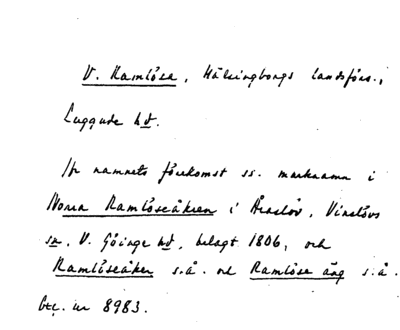 V. Ramlösa, Hälsingborgs landsförs.,
Luggude hd.
Jfr namnets förekomst ss. marknamn i
Norra Ramlöseåkren i Åraslöv, Vinslövs
sn, V. Göinge hd, belagt 1806, och
Ramlöseåker s.å. och Ramlöse äng s.å.
nr 8983.